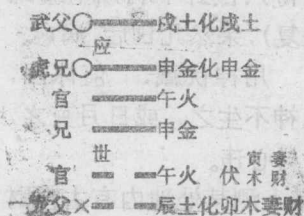 武父○ 戌土化戌土
应
虎兄○ 申金化申金
官 午火
兄 申金
世
官 午火 伏寅木妻财
父× 辰土化卯木妻财